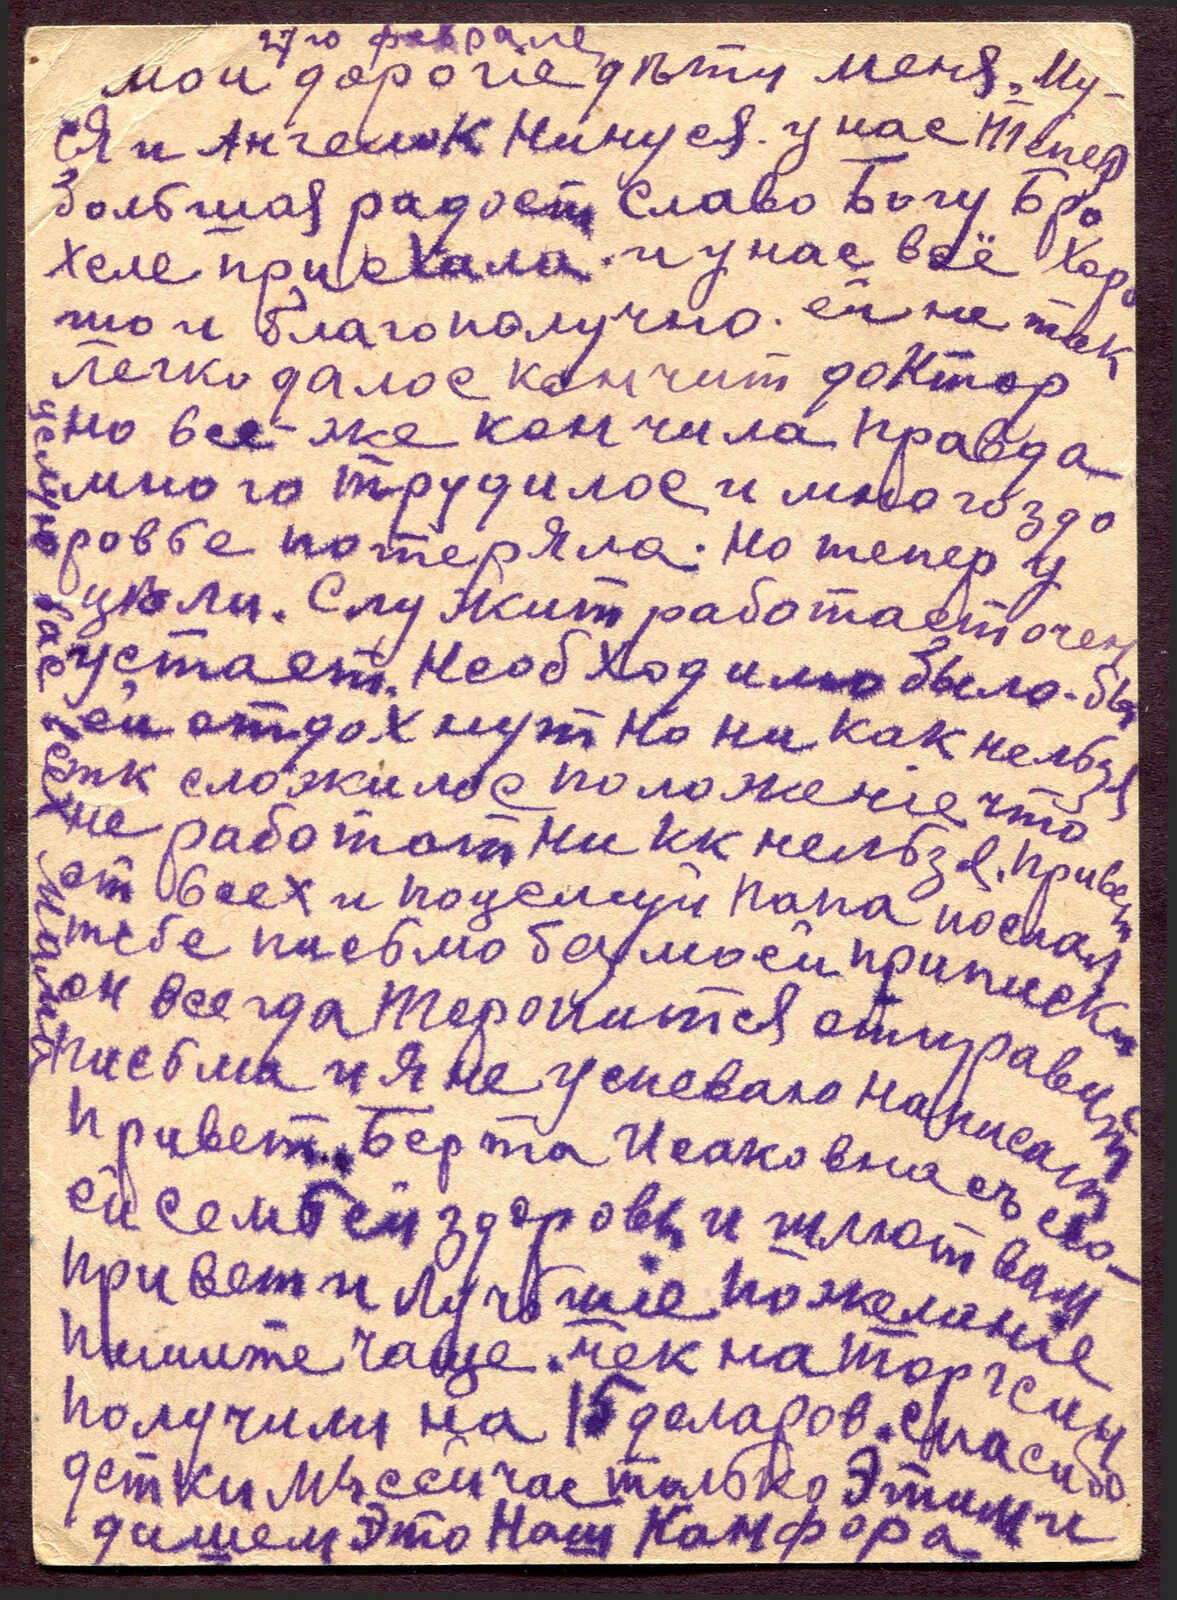 27 го феврале
мои дорогіе дѣти меня, Му-
ся и Ангелок Нинуся. у нас тепер
болбшая радост славо Богу Бро
хеле приехала. и у нас всё Хоро
шо и благополучно. ей не так
легко далос кончит доктор
но все-же кончила правда
много трудилос и много здо
ровбе потеряла. но тепер у
цѣли. Служит работает очен
устает. Необходимо было-бы
ей отдохнут но ни как нелбзя
тк сложилос положеніе что
не работат ни кк нелбзя. Привет
от всех и поцелуй папа послал
тебе писбмо без моей приписки
он всегда торопится отправит
писбма и я не успеваю написат
Привет. Берта Исаковна съ сво-
ей сембей здоровы и шлют вам
привет и лучбшіе пожеланіе
пишите чаще. чек на торгсин
получили на 15 деларов. спасибо
детки мы сейчас толбко этим и
дишем Это наш Камфора
целую вас всех мама